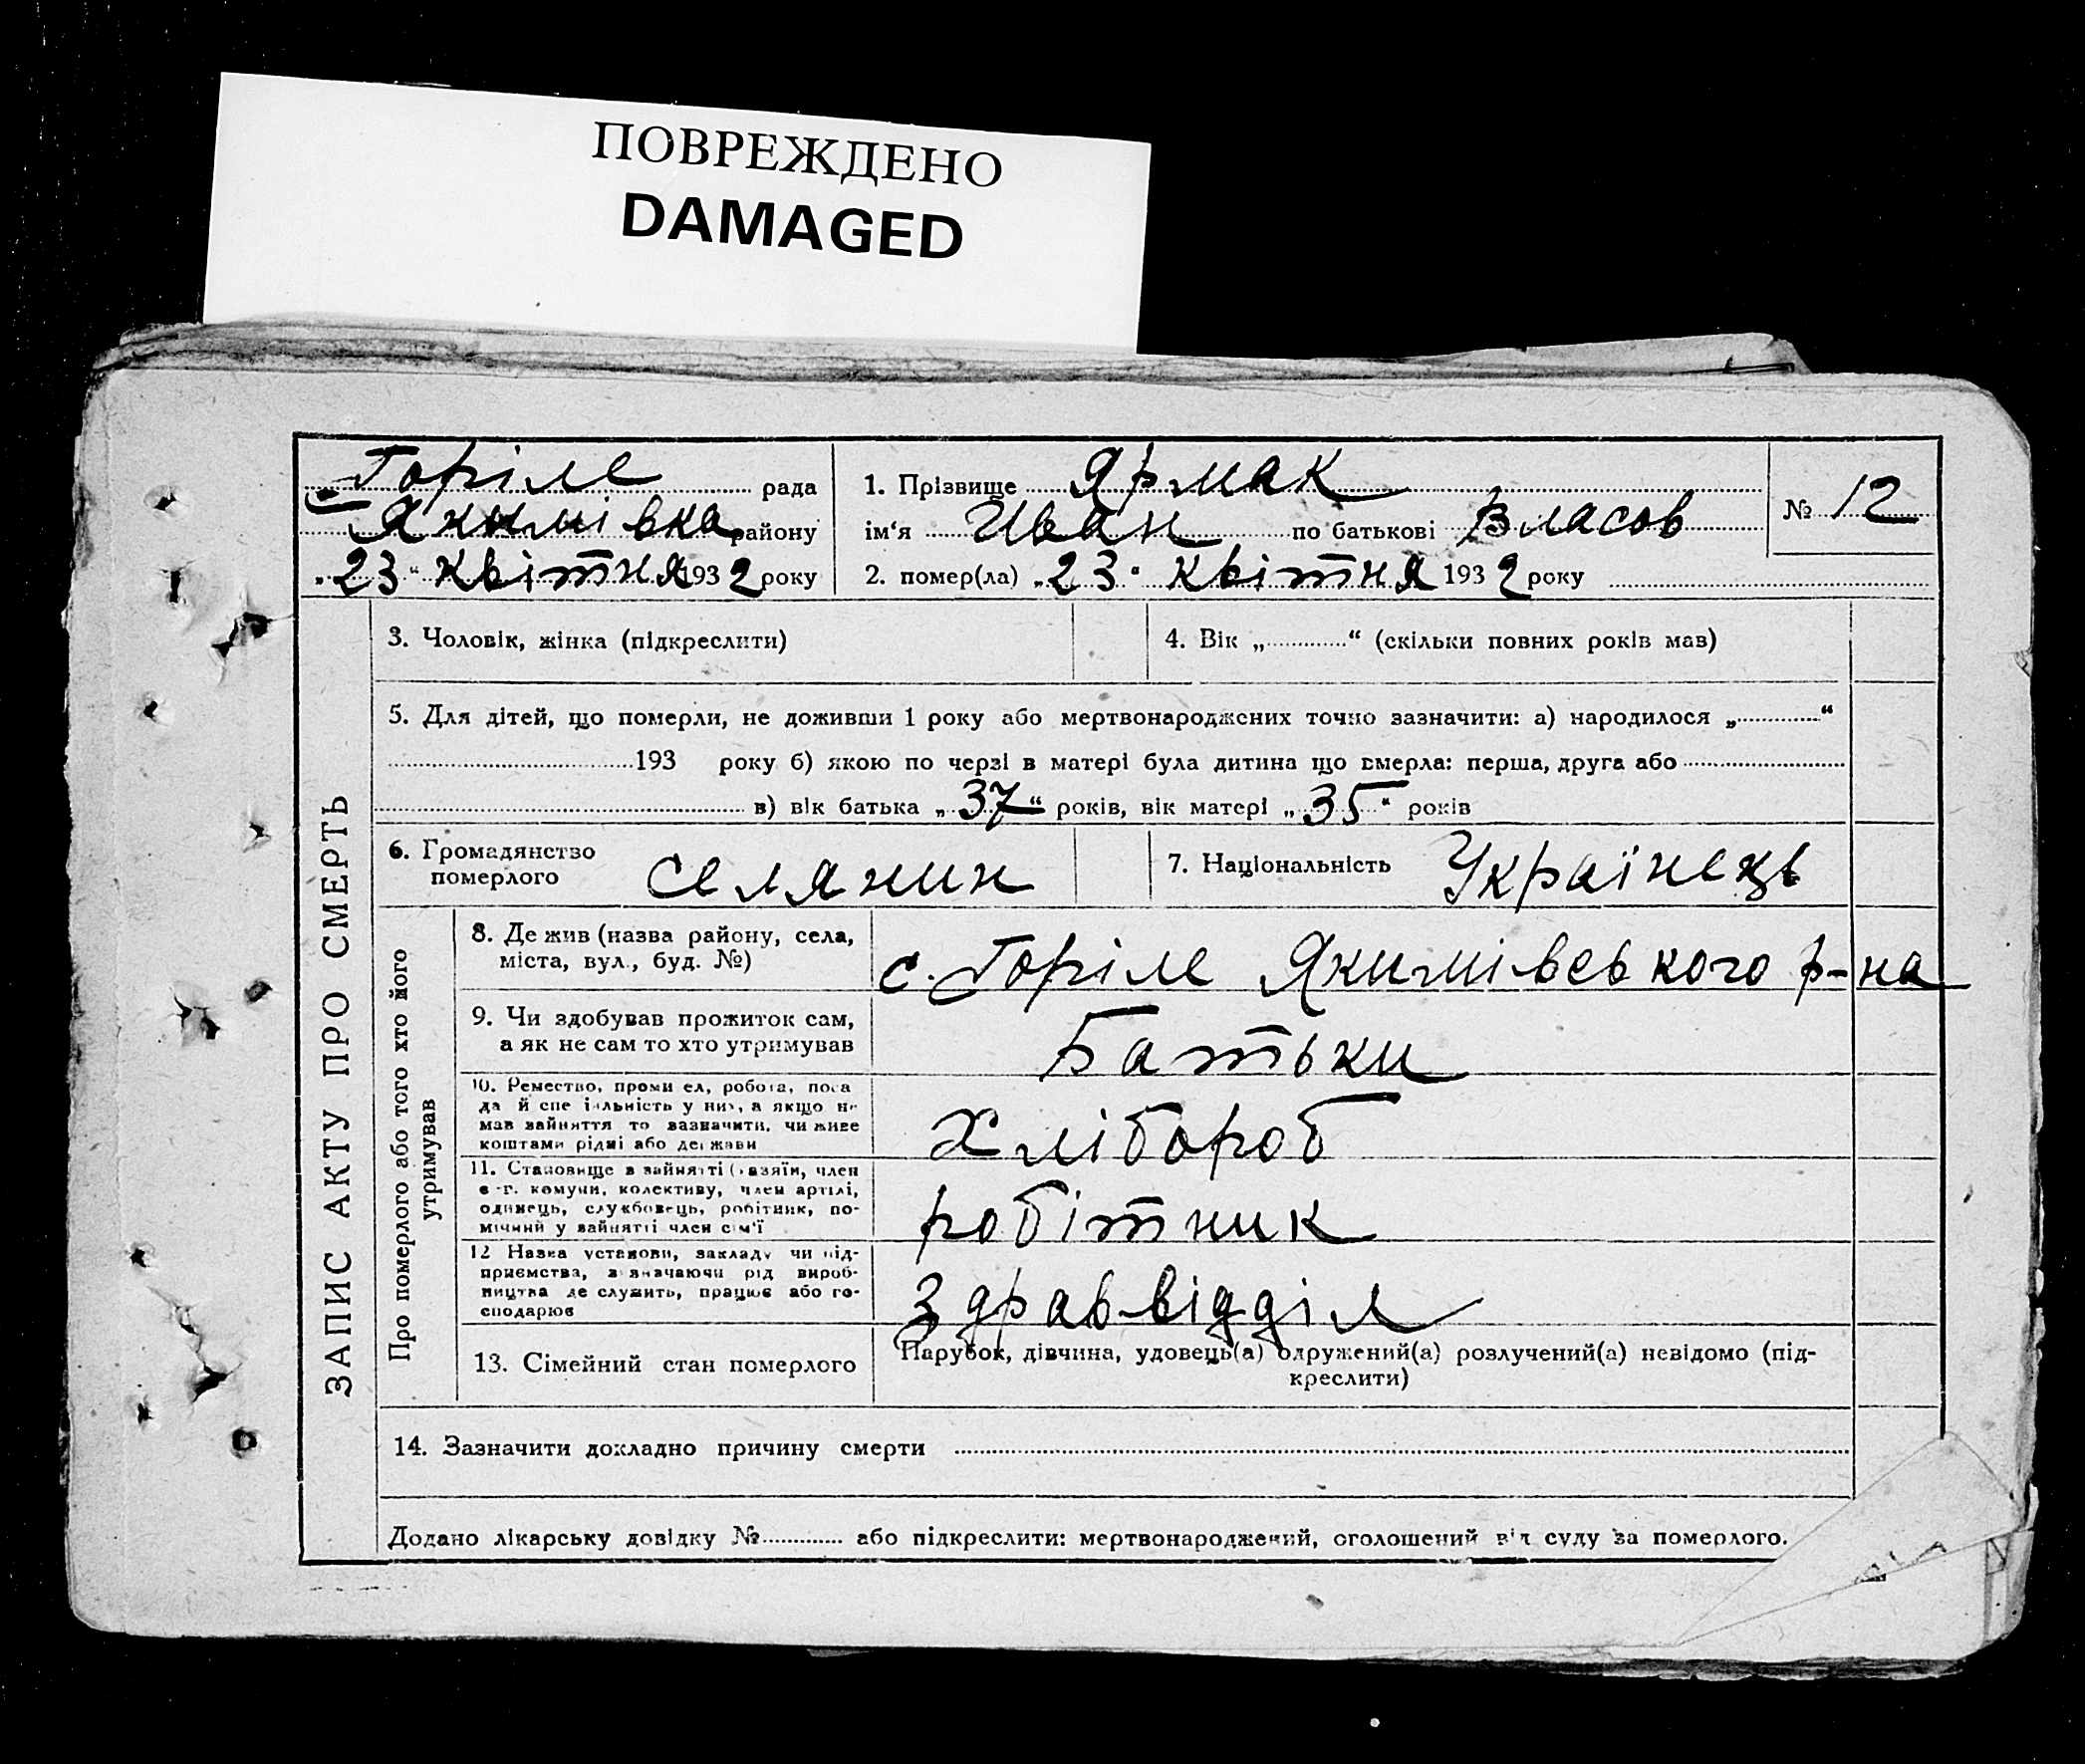 ПОВРЕЖДЕНО
DAMAGED
с Горіле рада
Якимівка району
„23“ квітня 1932 року
1. Прізвище Ярмак
ім‘я Иван по батькові Власов
2. помер(ла) „23“ квітня 1932 року
№ 12
ЗАПИС АКТУ ПРО СМЕРТЬ
3. Чоловік, жінка (підкреслити)
4. Вік „ “ (скільки повних років мав)
5. Для дітей, що померли, не доживши 1 року або мертвонароджених точно зазначити: а) народилося „ “
193 року б) якою по черзі в матері була дитина що вмерла: перша, друга або
в) вік батька „37“ років, вік матері „35“ років
6. Громадянство
померлого селянин
7. Національність Українець
Про померлого або того хто його
утримував
8. Де жив (назва району, села,
міста, вул., буд. №)
с. Горіле Якимівського р-на
9. Чи здобував прожиток сам,
а як не сам то хто утримував
Батьки
10. Ремество, промисел, робота, поса
да й спеціальність у них, а якщо не
мав зайняття то зазначити, чи живе
коштами рідні або держави
хлібороб
11. Становище в зайнятті (хазяїн, член
с.-г. комуни, колективу, член артілі,
одинець, службовець, робітник, по-
мічний у зайнятті член сім'ї
робітник
12 Назва установи, закладу чи під-
приємства, зазначаючи рід вироб-
ництва де служить, працює або го-
сподарює
Здрав-відділ
13. Сімейний стан померлого
Парубок, дівчина, удовець(а) одружений(а) розлучений(а) невідомо (під-
креслити)
14. Зазначити докладно причину смерти
Додано лікарську довідку № або підкреслити: мертвонароджений, оголошений від суду за померлого.